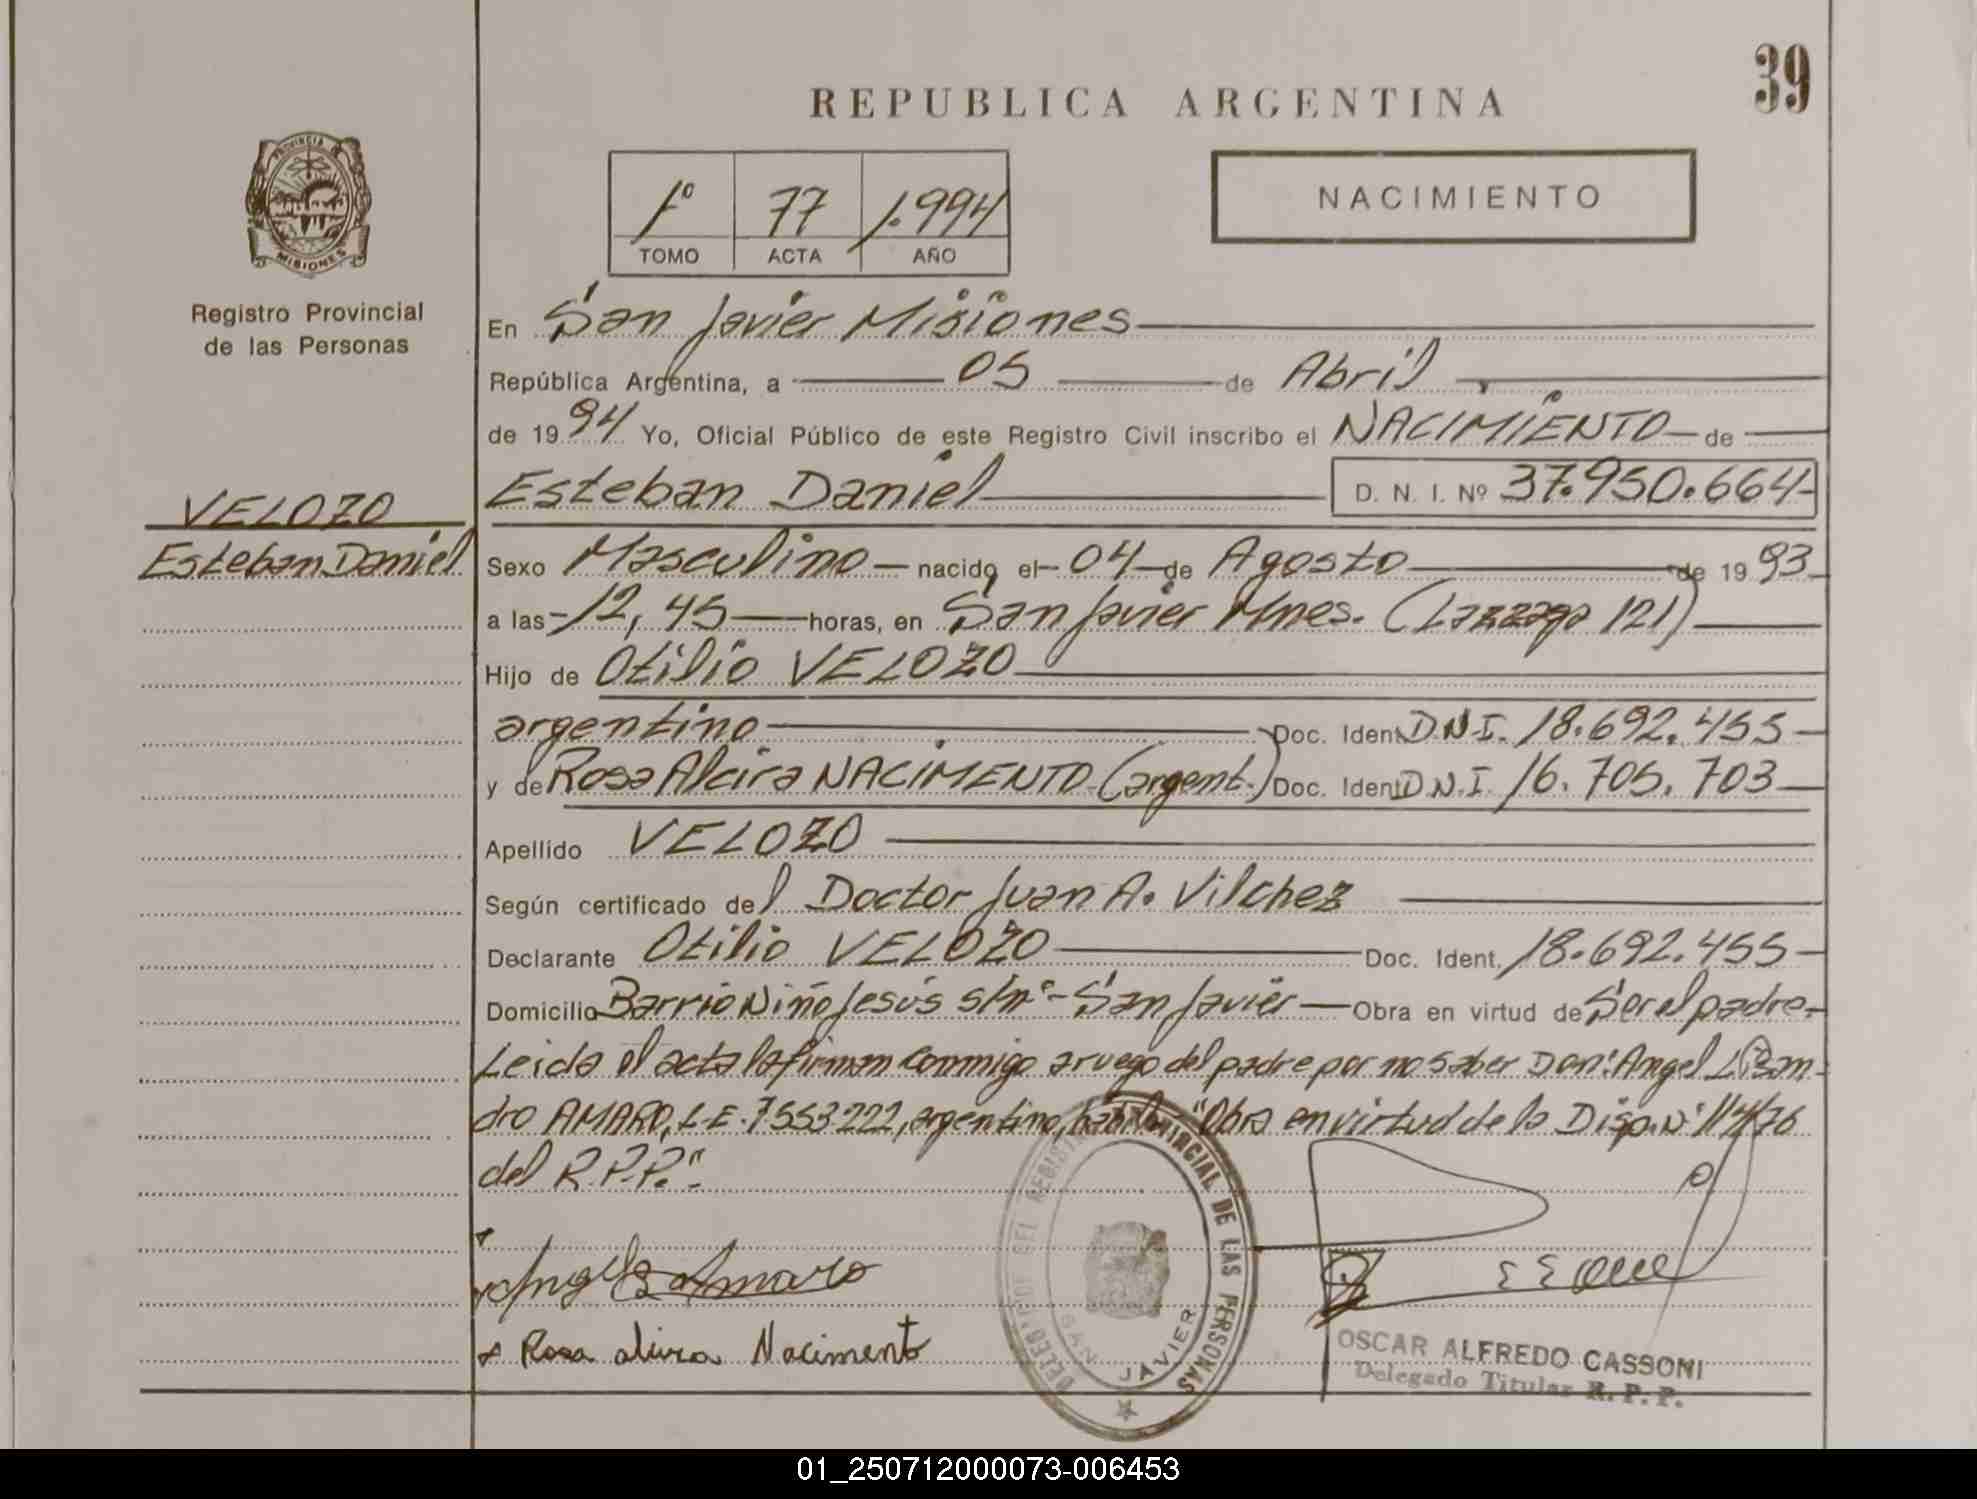 39
REPUBLICA ARGENTINA
1º 77 1.994
TOMO ACTA AÑO
NACIMIENTO
PROVINCIA DE
MISIONES
Registro Provincial
de las Personas
En San Javier Misiones
República Argentina, a 05 de Abril
de 1994 Yo, Oficial Público de este Registro Civil inscribo el NACIMIENTO de
Esteban Daniel D. N. I. Nº 37.950.664
VELOZO
Esteban Daniel
Sexo Masculino nacido el 04 de Agosto de 1993
a las 12,45 horas, en San Javier Mnes. (Lazzaga 121)
Hijo de Otilio VELOZO
argentino Doc. Ident D.N.I. 18.692.455
y de Rosa Alcira NACIMENTO (argent.) Doc. Ident D.N.I. 16.705.703
Apellido VELOZO
Según certificado del Doctor Juan A. Vilchez
Declarante Otilio VELOZO Doc. Ident. 18.692.455
Domicilio Barrio Niño Jesús s/nº - San Javier Obra en virtud de Ser el padre.
Leida el acta la firman conmigo a ruego del padre por no saber Don: Angel Lisan-
dro AMARO, L.E. 7553222, argentino, "Obra en virtud de la Disp. Nº 114/76
del R.P.P."
Angel Amaro
Rosa alcira Nacimento
DELEGACION DEL REGISTRO PROVINCIAL DE LAS PERSONAS
SAN JAVIER
OSCAR ALFREDO CASSONI
Delegado Titular R. P. P.
01_250712000073-006453